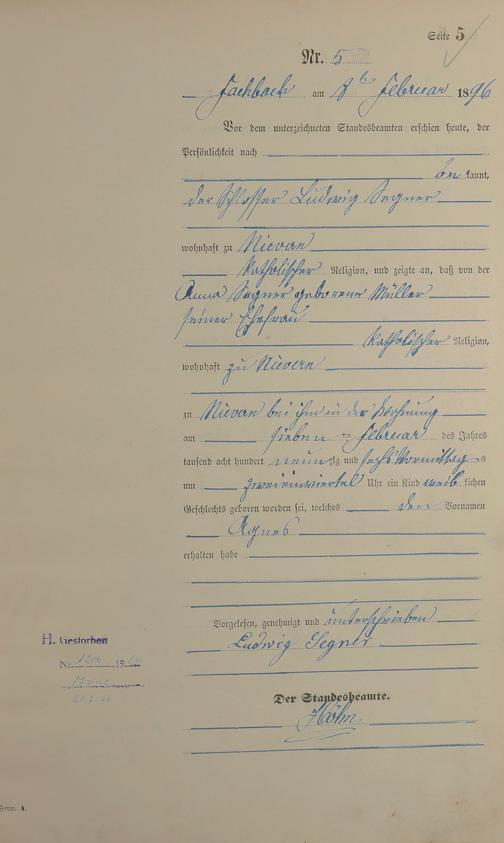 Seite 5
Nr. 5
Fachbach am 8ten Februar 1896
Vor dem unterzeichneten Standesbeamten erschien heute, der
Persönlichkeit nach
bekannt,
der Schlosser Ludwig Segner
wohnhaft zu Nievern
katholischer Religion, und zeigte an, daß von der
Anna Segner geborene Müller
seiner Ehefrau
katholischer Religion,
wohnhaft zu Nievern
zu Nievern bei ihm in der Wohnung
am sieben Februar des Jahres
tausend acht hundert neunzig und sechs Vormittags
um zweieinviertel Uhr ein Kind weiblichen
Geschlechts geboren worden sei, welches den Vornamen
Agnes
erhalten habe
Vorgelesen, genehmigt und unterschrieben
Ludwig Segner
Der Standesbeamte.
Höhn
H. Gestorben
Nr. 19
Form. A.